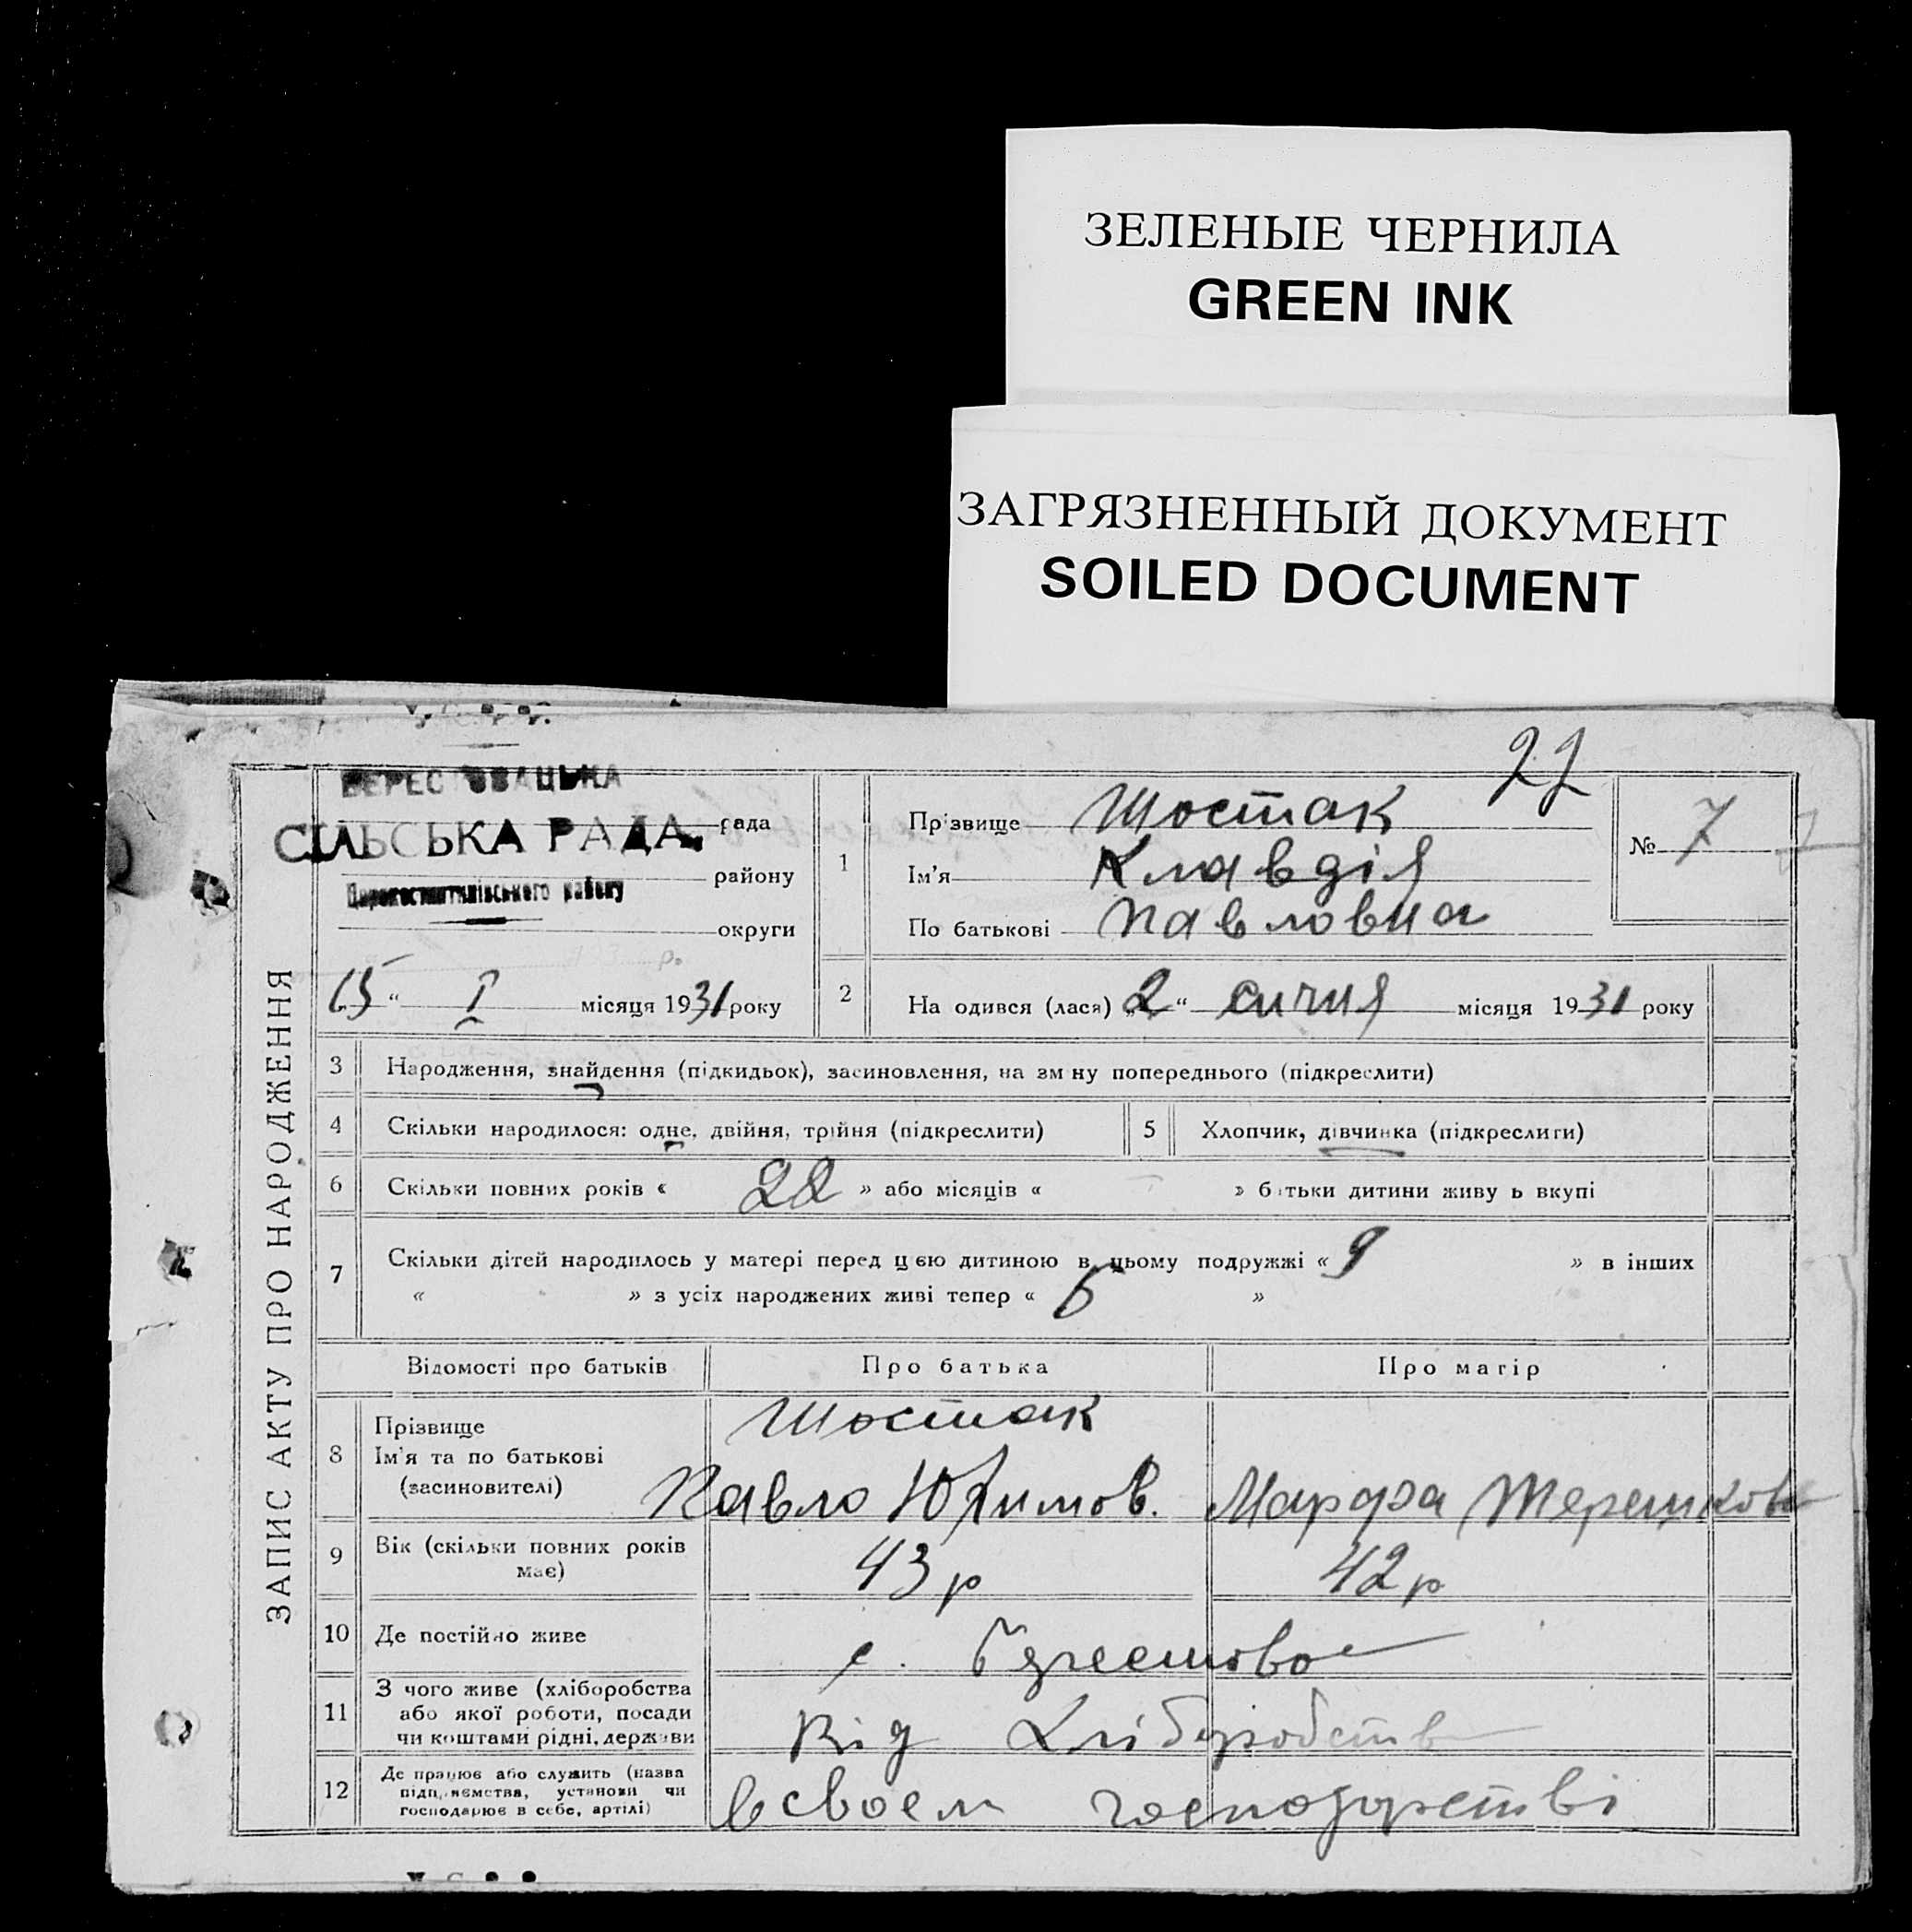 ЗЕЛЕНЫЕ ЧЕРНИЛА
GREEN INK
ЗАГРЯЗНЕННЫЙ ДОКУМЕНТ
SOILED DOCUMENT
22
ЗАПИС АКТУ ПРО НАРОДЖЕННЯ
СІЛЬСЬКА РАДА. рада
району
округи
15 " I місяця 1931 року
1
Прізвище Шостак
Ім'я Клавдія
По батькові Павловна
№ 7
2 На одився (лася) „2" сичня місяця 1931 року
3 Народження, знайдення (підкидьок), засиновлення, на зм ну попереднього (підкреслити)
4 Скільки народилося: одне, двійня, трійня (підкреслити)
5 Хлопчик, дівчинка (підкреслити)
6 Скільки повних років « 22 » або місяців « » батьки дитини живу ь вкупі
7 Скільки дітей народилось у матері перед цією дитиною в цьому подружжі « 9 » в інших
« » з усіх народжених живі тепер « 6 »
Відомості про батьків Про батька Про матір
8 Прізвище
Ім'я та по батькові
(засиновителі)
Шостак
Павло Юхимов. Марфа
9 Вік (скільки повних років
має)
43 р 42 р
10 Де постійно живе с.
11 З чого живе (хліборобства
або якої роботи, посади
чи коштами рідні, держави
Від Хліборобств
12 Де працює або служить (назва
підприємства, установи чи
господарює в себе, артілі)
в своем господарстві